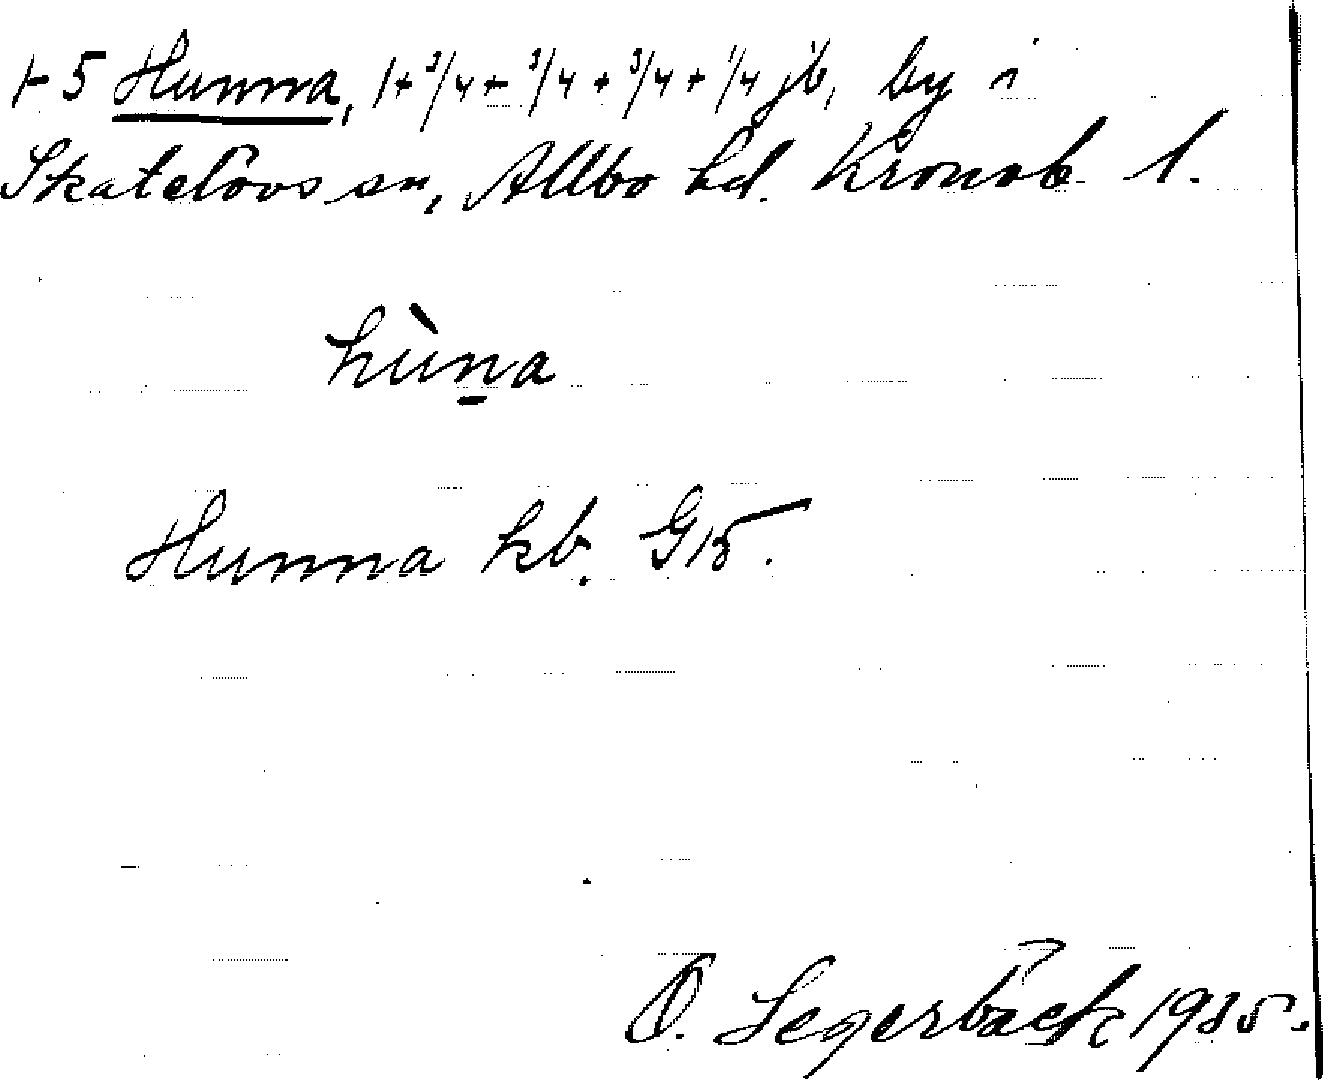 1-5 Hunna, 1+3/4+3/4+3/4+1/4 jb, by i
Skatelövs sn, Allbo hd. Kronob. l.
hùn̠a
Hunna kb. G15.
O. Segerbäck 1935.